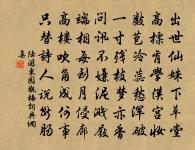 出世仙姝下草堂
高標肯學漢宮妝
數苞冷蕊愁渾破
一寸殘枝夢亦香
問訊不嫌泥溅屐
端相每到月侵廊
高樓吹角成何事
只替詩人說斷腸
陸游東園觀梅詞典網
集